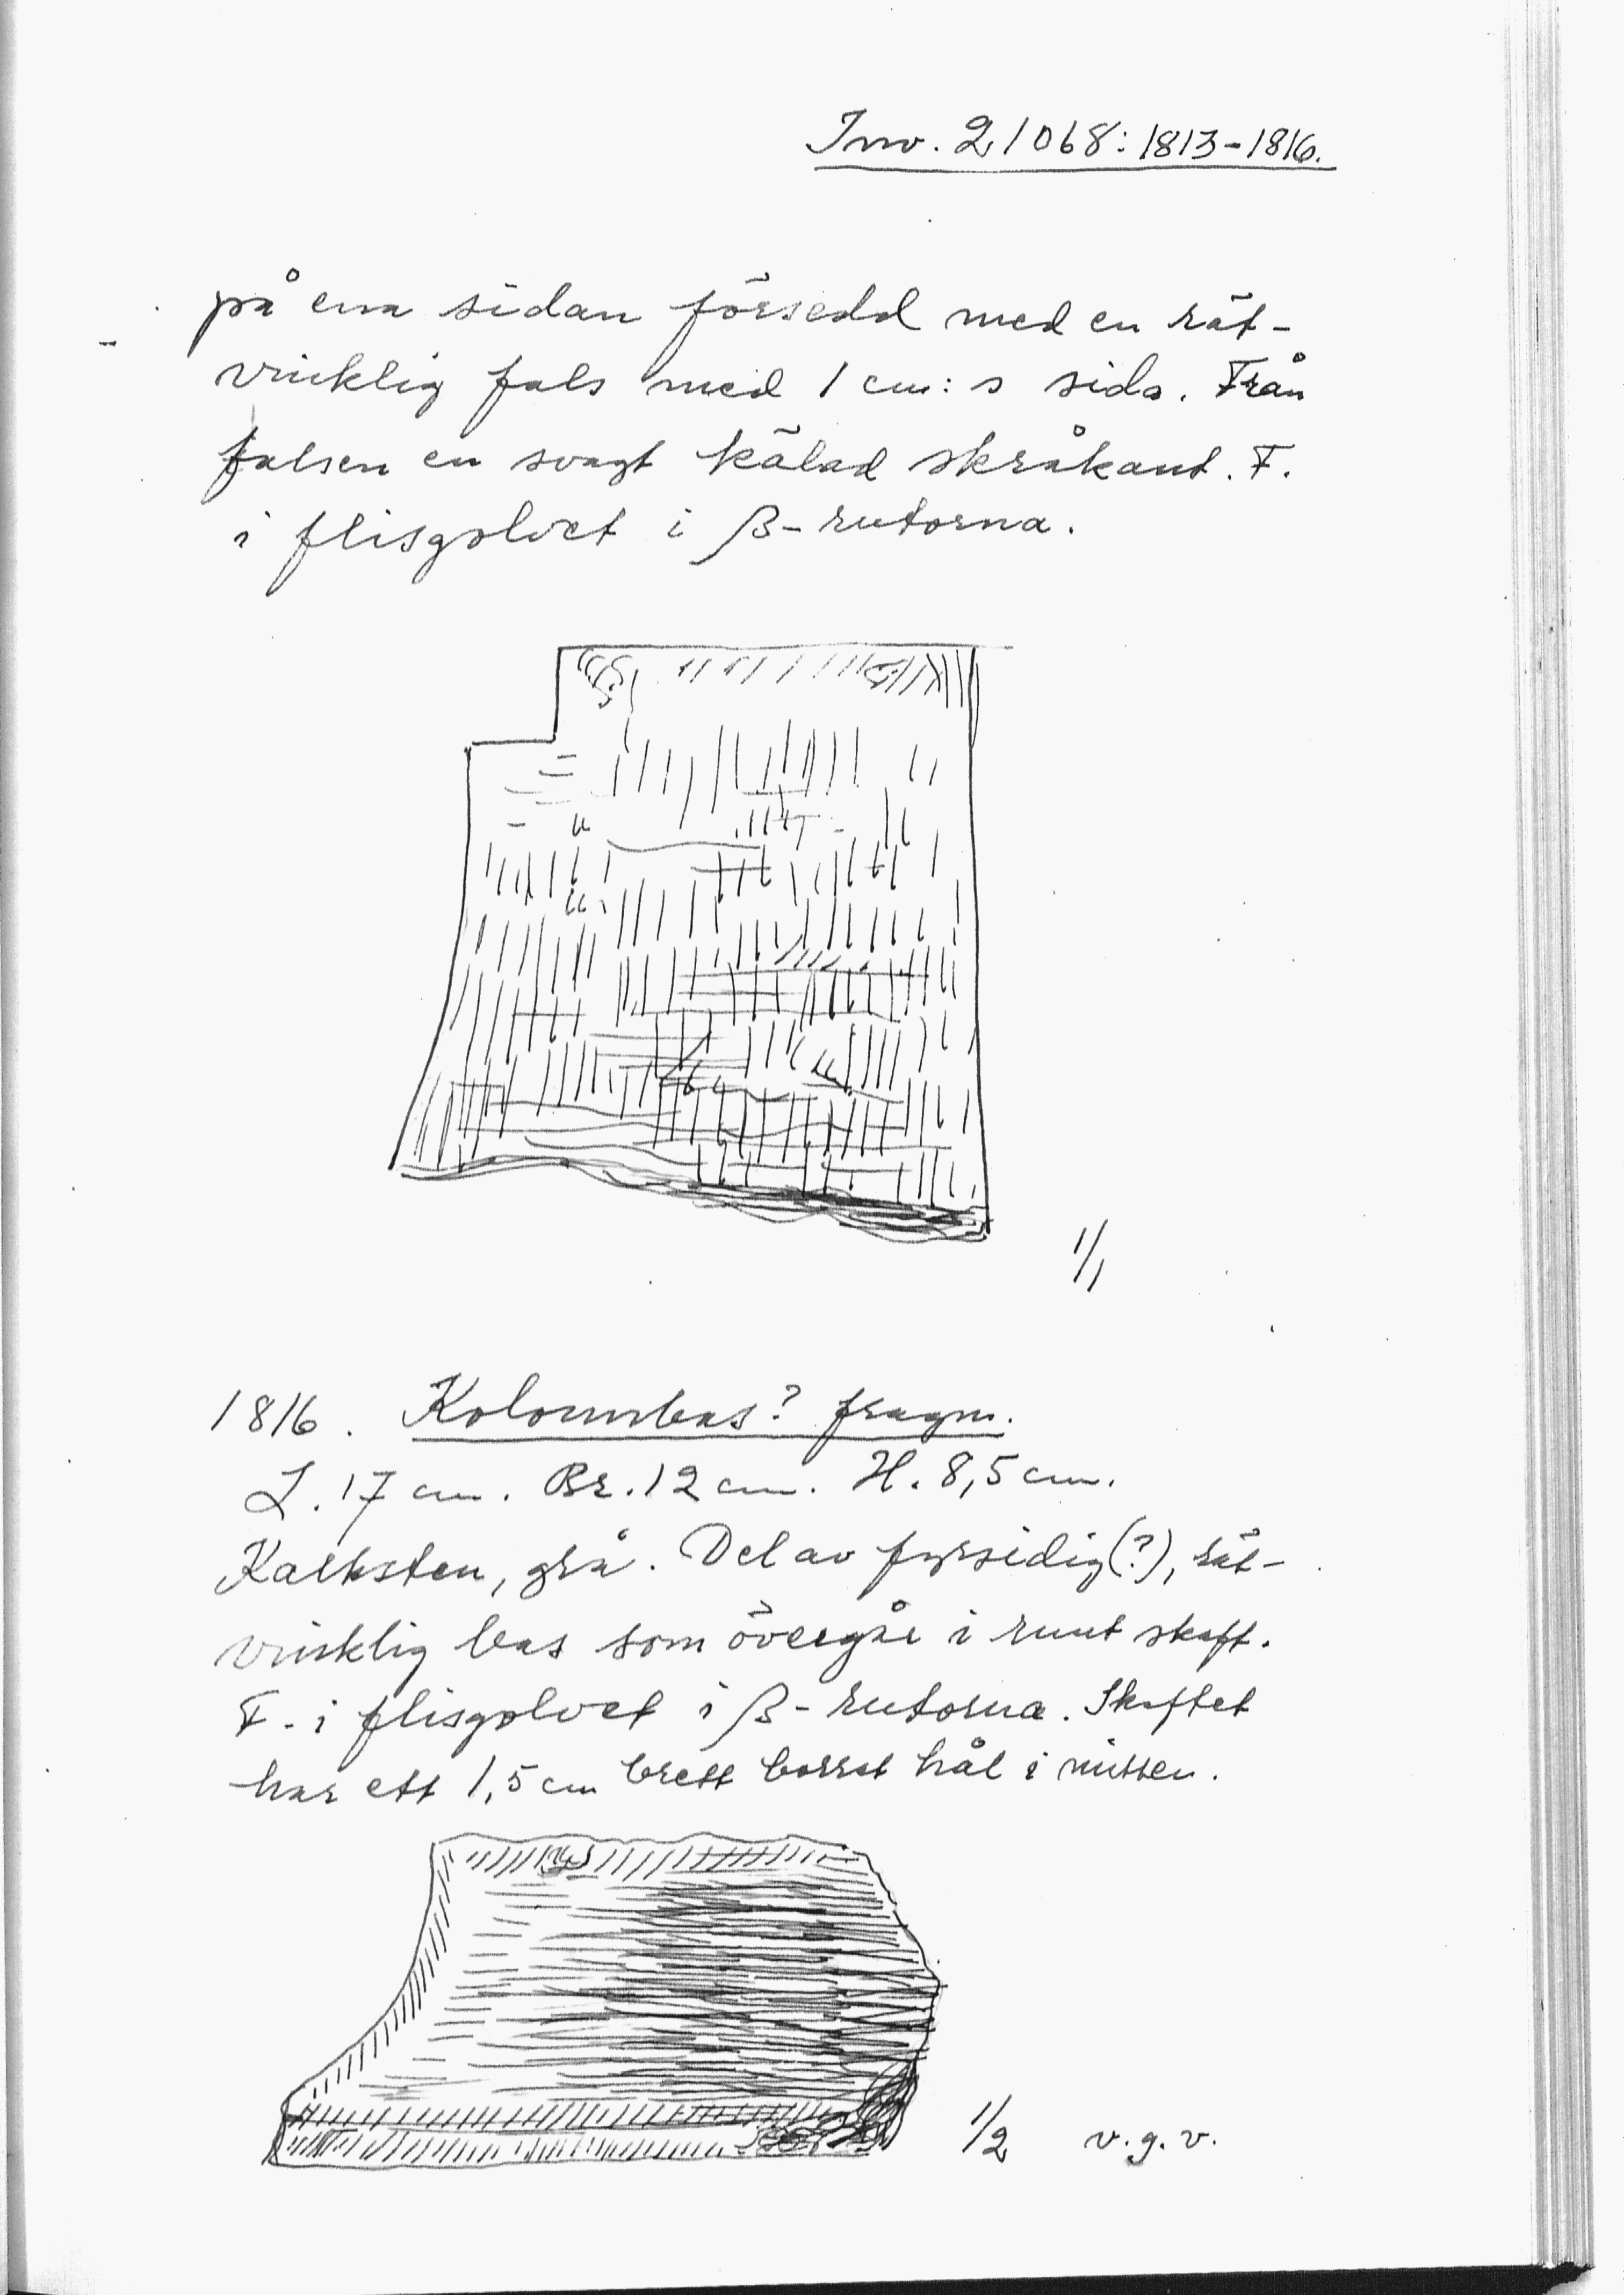 Inv. 21068:1813-1816.
på ena sidan försedd med en rät-
vinklig fals med 1 cm:s sida. Från
falsen en svagt kålad skråkant. F.
i flisgolvet i β-rutorna.
1/1
1816. Kolonnbas? fragm.
L. 17 cm. Br. 12 cm. H. 8,5 cm.
Kalksten, grå. Del av fyrsidig(?), rät-
vinklig bas som övergår i runt skaft.
F. i flisgolvet i β-rutorna. Skaftet
har ett 1,5 cm brett borrat hål i mitten.
1/2 v.g.v.